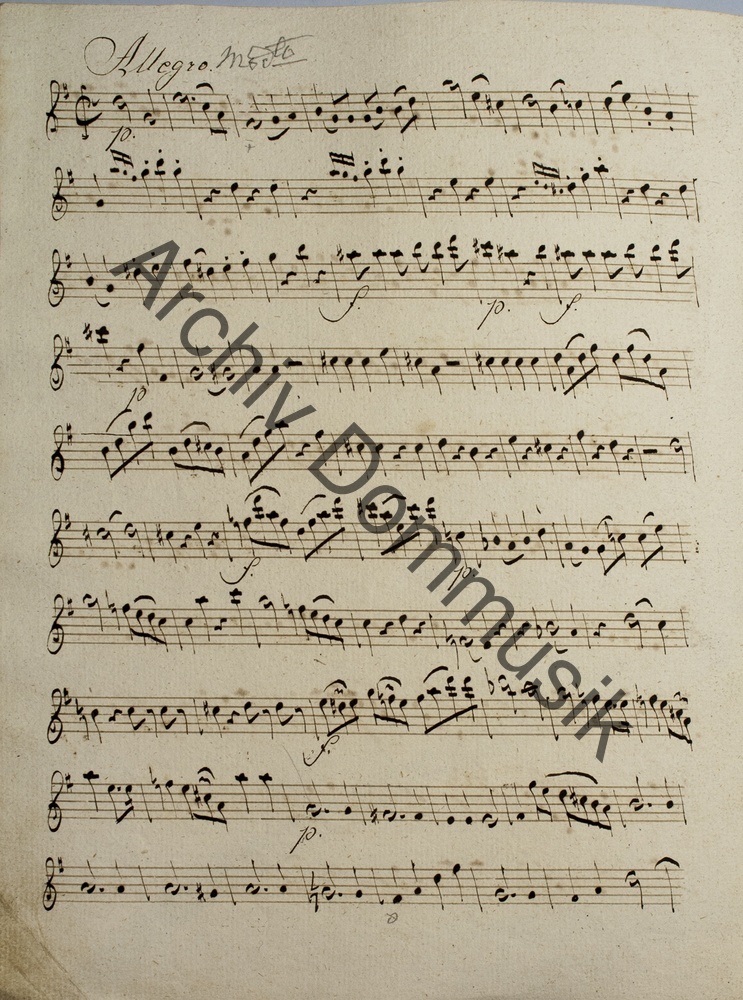 Allegro. mod.to
p.
f. p. f.
p
f. p.
f.
p.
Archiv Dommusik